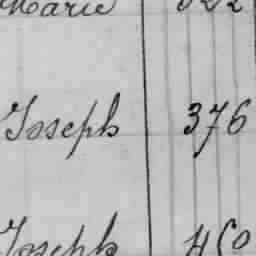 Marie 622
Joseph 376
Joseph 450